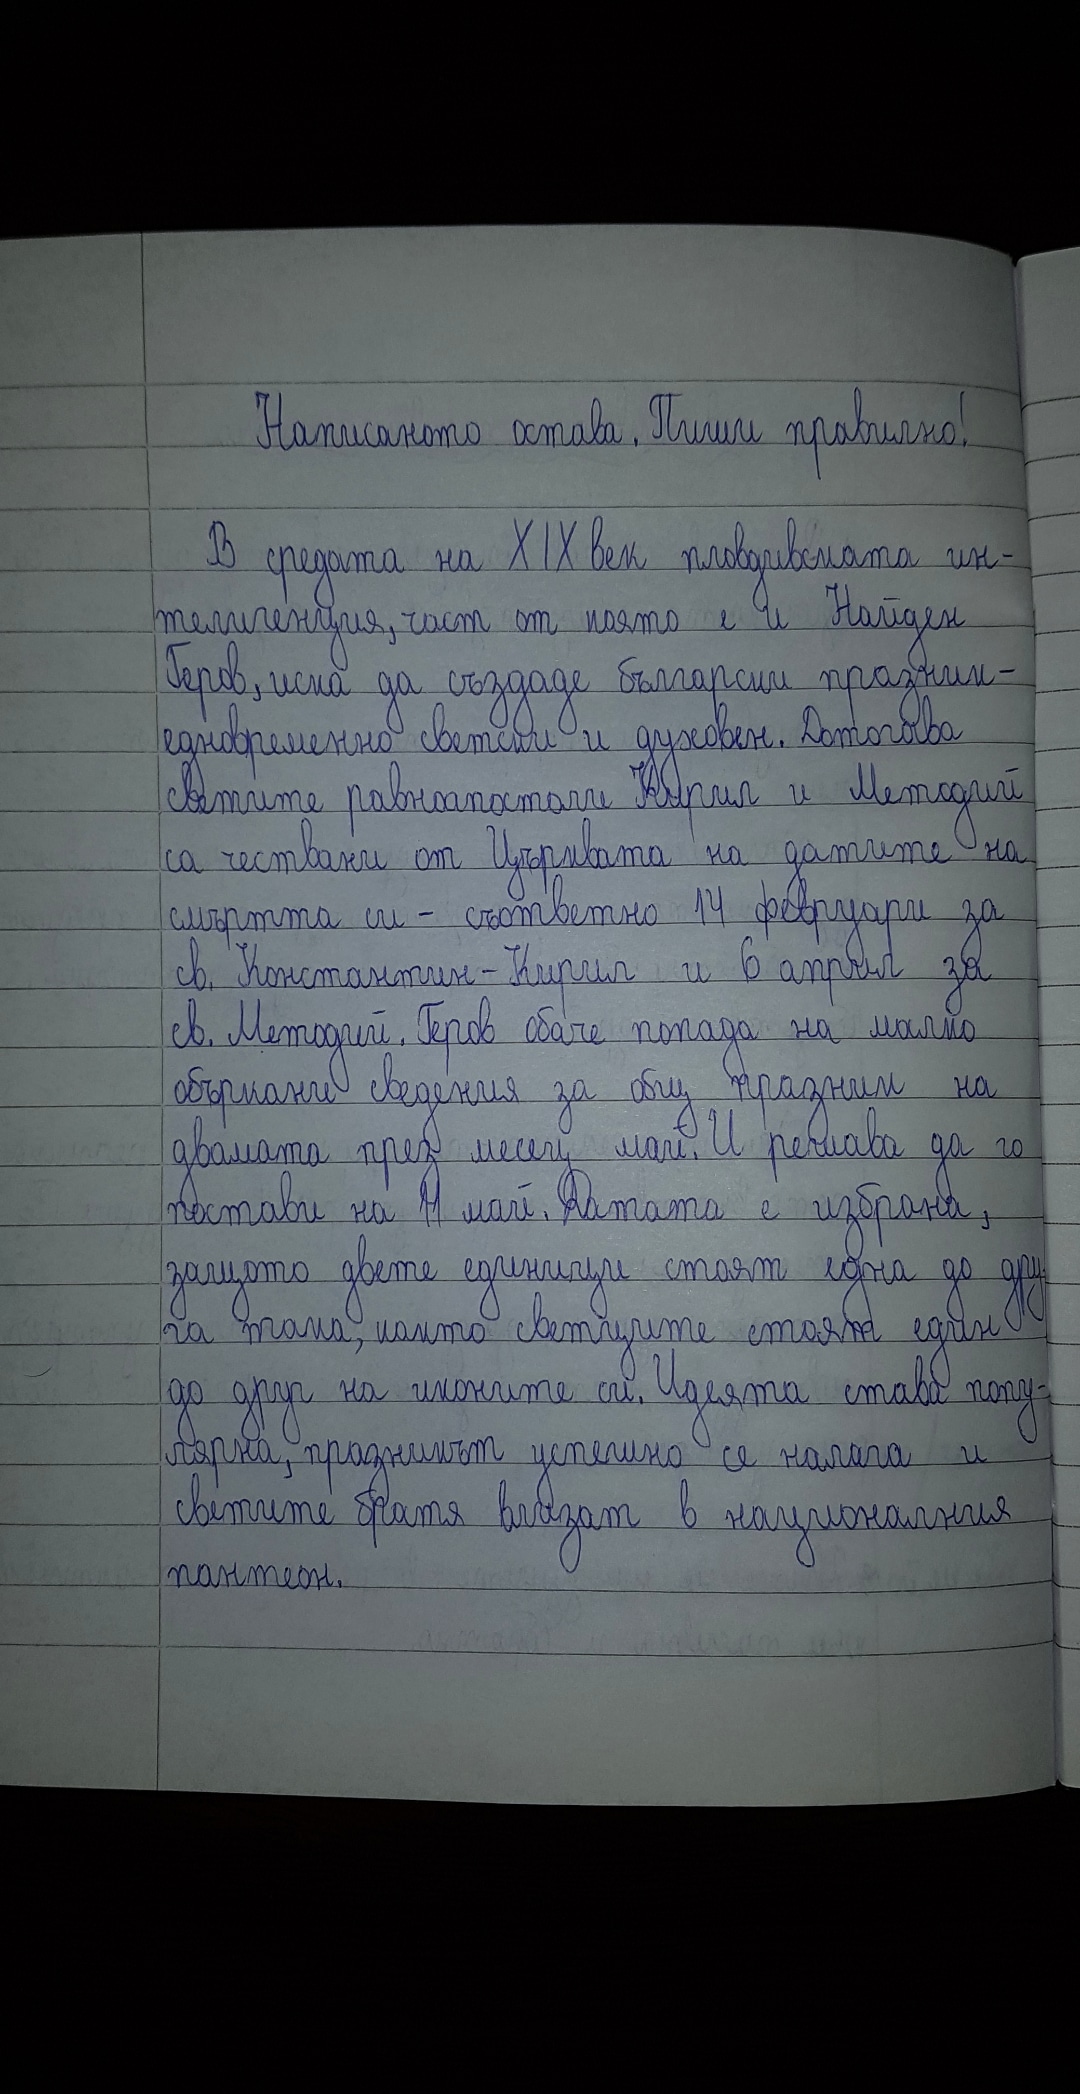 Написаното остава. Пиши правилно!
В средата на XIX век пловдивската ин-
телигенция, част от която е и Найден
Геров, иска да създаде български празник-
едновременно светски и духовен. Дотогава
светите равноапостоли Кирил и Методий
са чествани от Църквата на датите на
смъртта си - съответно 14 февруари за
св. Константин-Кирил и 6 април за
св. Методий. Геров обаче попада на малко
объркани сведения за общ празник на
двамата през месец май. И решава да го
постави на 11 май. Датата е избрана,
защото двете единици стоят една до дру-
га така, както светците стоят един
до друг на иконите си. Идеята става попу-
лярна, празникът успешно се налага и
светите братя влизат в националния
пантеон.